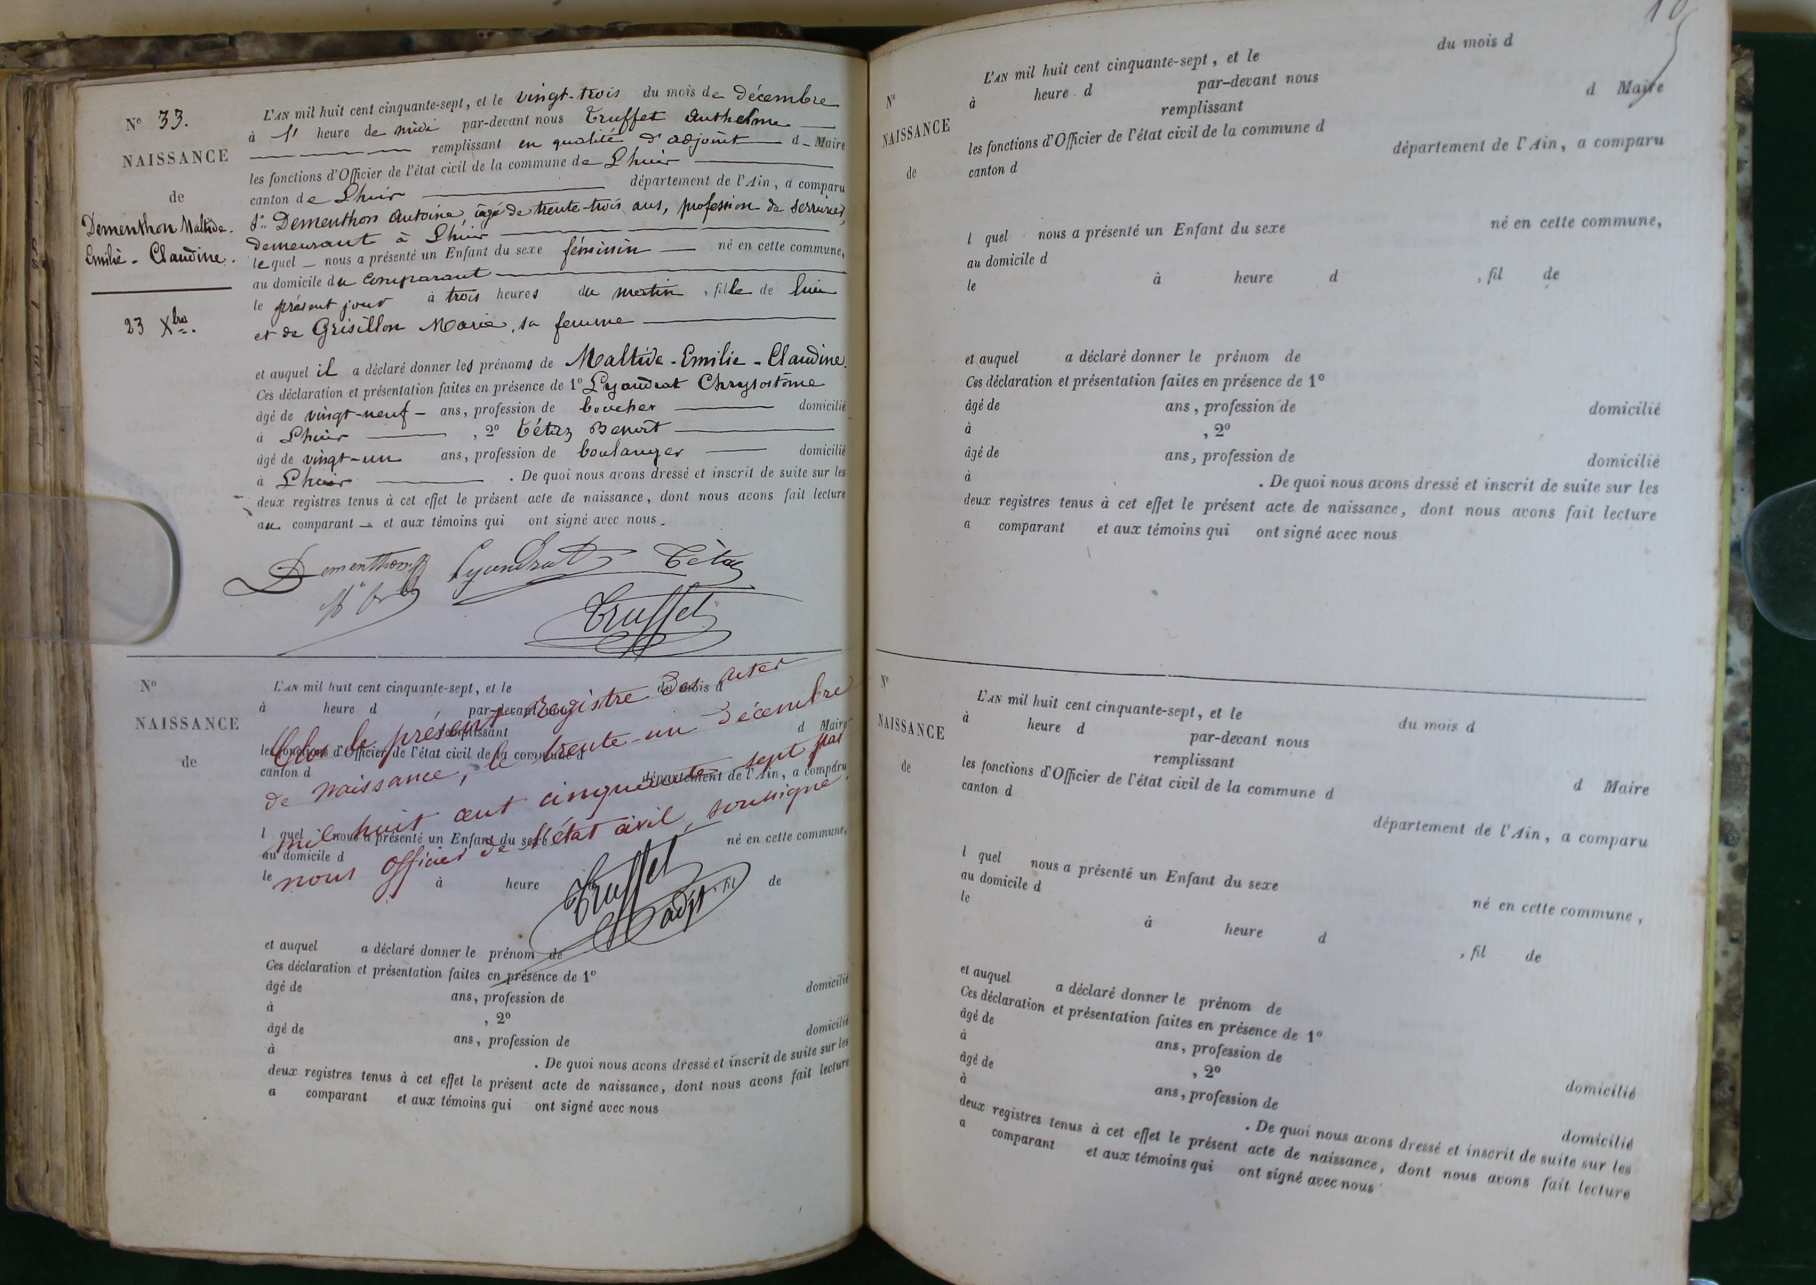 N° 33.
NAISSANCE
de
Dementhon Maltide.
Emilie - Claudine.
23 Xbre.
L'AN mil huit cent cinquante-sept, et le vingt-trois du mois de décembre
à 1' heure de midi par-devant nous Truffet Anthelme
remplissant en qualité d'adjoint d Maire
les fonctions d'Officier de l'état civil de la commune de Lhuis
canton de Lhuis département de l'Ain, a comparu
Sr. Dementhon Antoine, âgé de trente-trois ans, profession de serrurier,
demeurant à Lhuis
lequel nous a présenté un Enfant du sexe féminin né en cette commune,
au domicile du comparant
le présent jour à trois heures du matin, fille de lui
et de Grisillon Marie, sa femme
et auquel il a déclaré donner les prénoms de Maltide-Emilie-Claudine.
Ces déclaration et présentation faites en présence de 1° Lyaudrat Chrysostôme
âgé de vingt-neuf ans, profession de boucher domicilié
à Lhuis, 2° Tétaz Benoît
âgé de vingt-un ans, profession de boulanger domicilié
à Lhuis. De quoi nous avons dressé et inscrit de suite sur les
deux registres tenus à cet effet le présent acte de naissance, dont nous avons fait lecture
au comparant et aux témoins qui ont signé avec nous.
Dementhon Lyaudrat Tétaz
Truffet
N°
NAISSANCE
de
L'AN mil huit cent cinquante-sept, et le du mois d
à heure d par-devant nous
remplissant d Maire
les fonctions d'Officier de l'état civil de la commune d
canton d département de l'Ain, a comparu
l quel nous a présenté un Enfant du sexe né en cette commune,
au domicile d
le à heure , fil de
Clos le présent Registre des actes
de naissance, le trente-un décembre
mil huit cent cinquante sept par
nous officier de l'état civil, soussigné.
Truffet
adjt
et auquel a déclaré donner le prénom de
Ces déclaration et présentation faites en présence de 1°
âgé de ans, profession de domicilié
à , 2°
âgé de ans, profession de domicilié
à . De quoi nous avons dressé et inscrit de suite sur les
deux registres tenus à cet effet le présent acte de naissance, dont nous avons fait lecture
a comparant et aux témoins qui ont signé avec nous
N°
NAISSANCE
de
L'AN mil huit cent cinquante-sept, et le du mois d
à heure d par-devant nous
remplissant d Maire
les fonctions d'Officier de l'état civil de la commune d
canton d département de l'Ain, a comparu
l quel nous a présenté un Enfant du sexe né en cette commune,
au domicile d
le à heure d , fil de
et auquel a déclaré donner le prénom de
Ces déclaration et présentation faites en présence de 1°
âgé de ans, profession de domicilié
à , 2°
âgé de ans, profession de domicilié
à . De quoi nous avons dressé et inscrit de suite sur les
deux registres tenus à cet effet le présent acte de naissance, dont nous avons fait lecture
a comparant et aux témoins qui ont signé avec nous
N°
NAISSANCE
de
L'AN mil huit cent cinquante-sept, et le du mois d
à heure d par-devant nous
remplissant d Maire
les fonctions d'Officier de l'état civil de la commune d
canton d département de l'Ain, a comparu
l quel nous a présenté un Enfant du sexe né en cette commune,
au domicile d
le à heure d , fil de
et auquel a déclaré donner le prénom de
Ces déclaration et présentation faites en présence de 1°
âgé de ans, profession de domicilié
à , 2°
âgé de ans, profession de domicilié
à . De quoi nous avons dressé et inscrit de suite sur les
deux registres tenus à cet effet le présent acte de naissance, dont nous avons fait lecture
a comparant et aux témoins qui ont signé avec nous